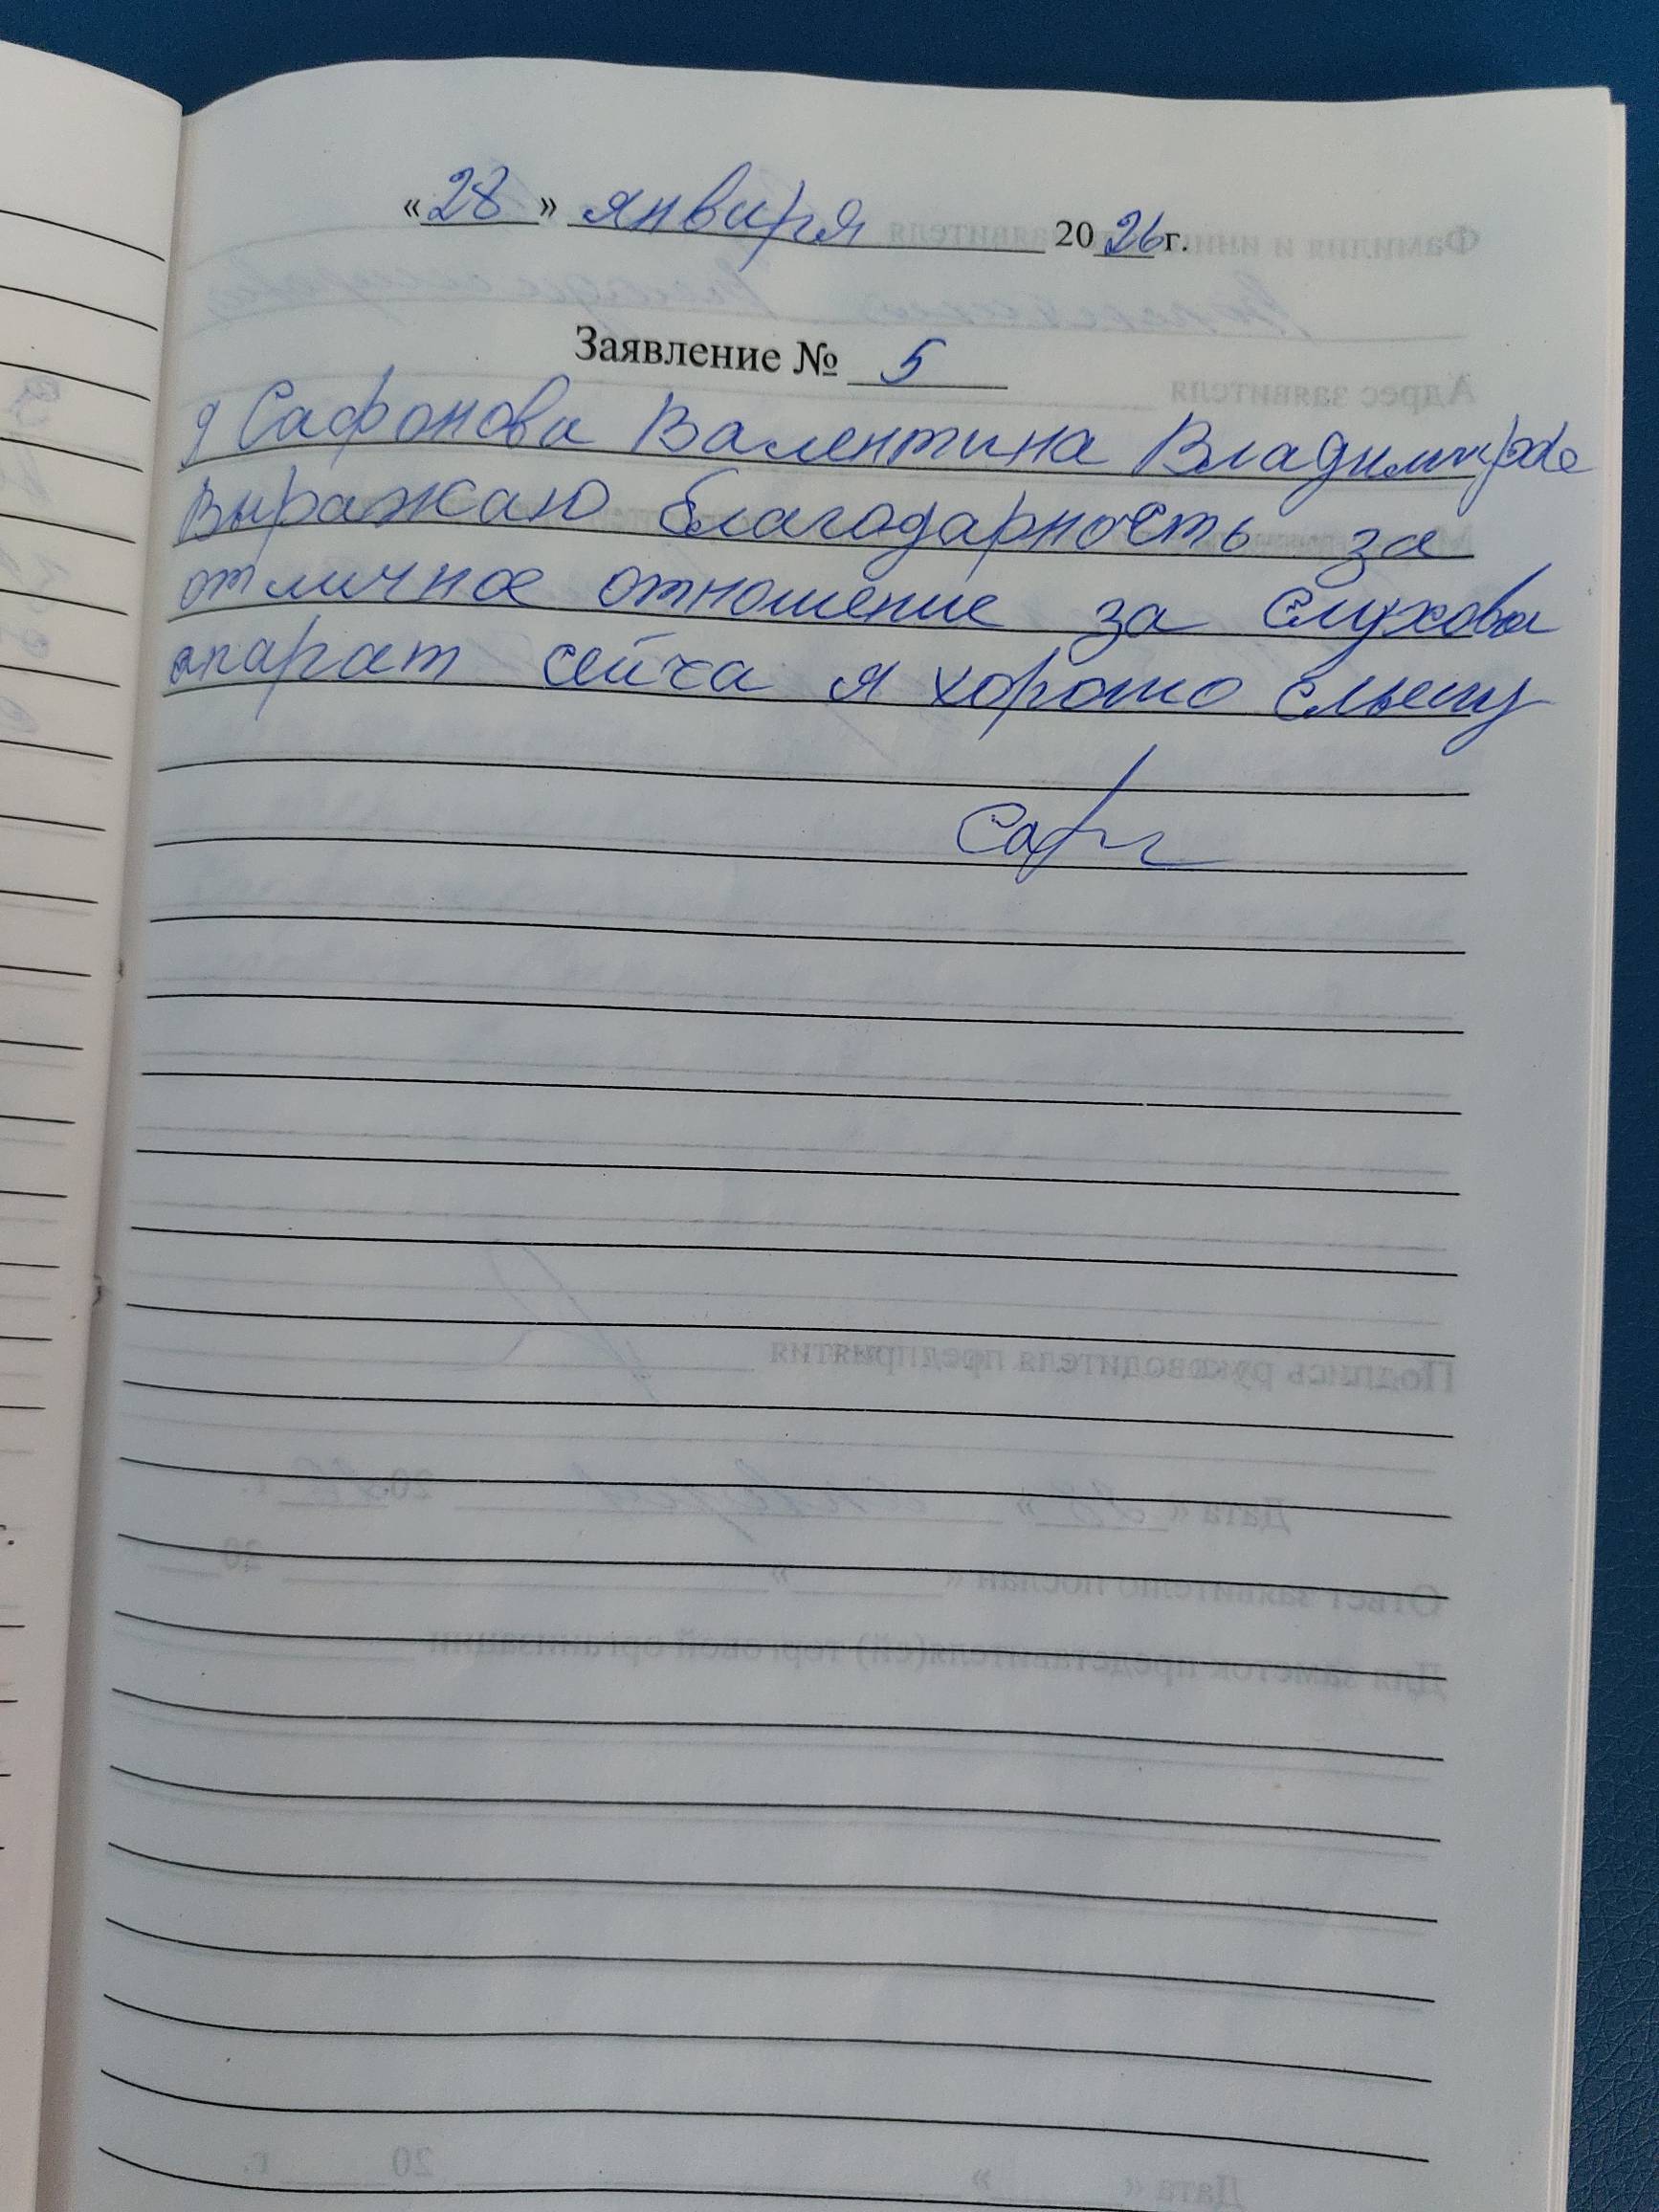 «28» января 2026г.
Заявление № 5
я Сафонова Валентина Владимиров
выражаю благодарность за
отличное отношение за слухова
апарат сейча я хорошо слышу
Саф